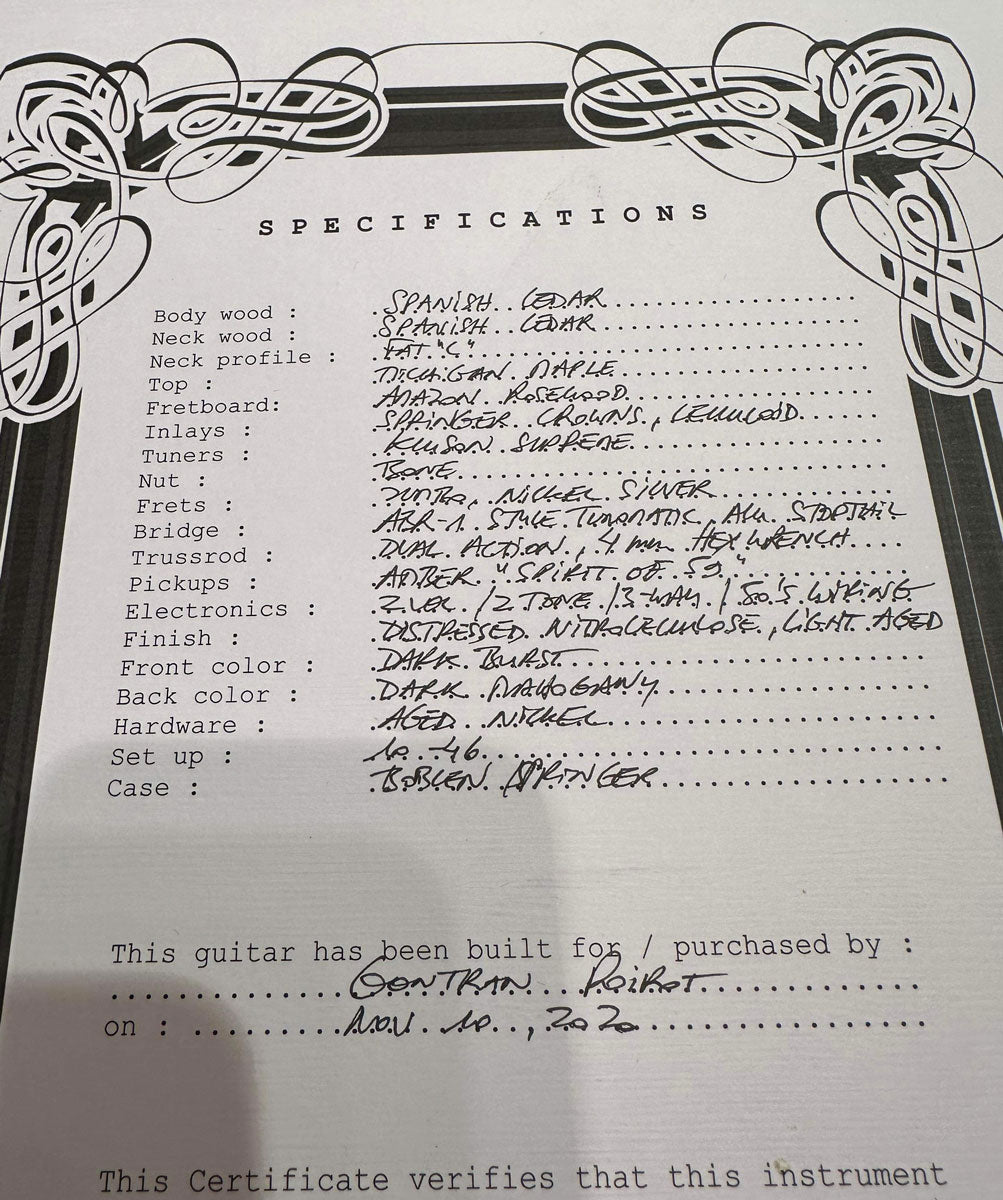 SPECIFICATIONS
Body wood : SPANISH CEDAR
Neck wood : SPANISH CEDAR
Neck profile : FAT "C"
Top : MICHIGAN MAPLE
Fretboard: AMAZON ROSEWOOD
Inlays : SPRINGER CROWNS, CELLULOID
Tuners : KLUSON SUPREME
Nut : BONE
Frets : JUMBO, NICKEL SILVER
Bridge : ABR-1 STYLE TUNOMATIC, ALU STOPTAIL
Trussrod : DUAL ACTION, 4 mm HEX WRENCH
Pickups : AMBER "SPIRIT OF 59"
Electronics : 2 VOL / 2 TONE / 3-WAY / 50'S WIRING
Finish : DISTRESSED NITROCELLULOSE, LIGHT AGED
Front color : DARK BURST
Back color : DARK MAHOGANY
Hardware : AGED NICKEL
Set up : 10-46
Case : BOBLEN SPRINGER
This guitar has been built for / purchased by :
GONTRAN POIROT
on : NOV 10, 2020
This Certificate verifies that this instrument